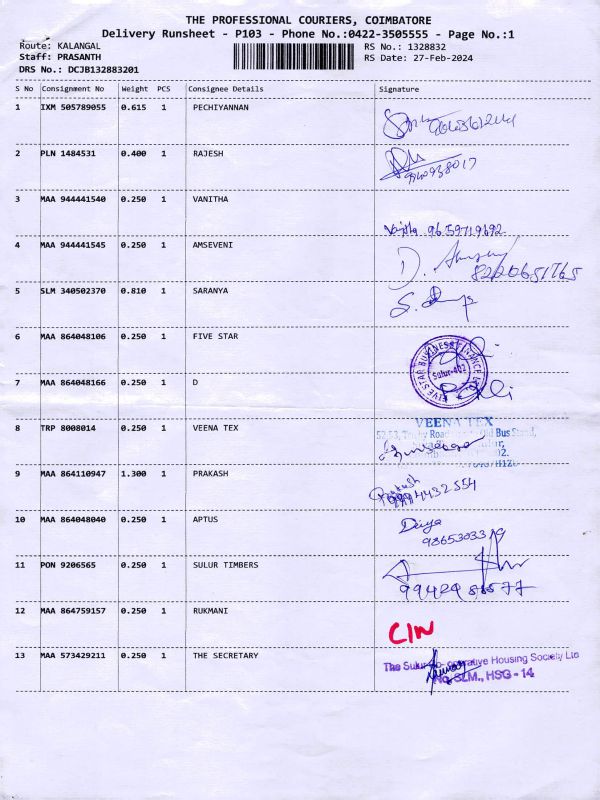 THE PROFESSIONAL COURIERS, COIMBATORE
Delivery Runsheet - P103 - Phone No.:0422-3505555 - Page No.:1
Route: KALANGAL RS No.: 1328832
Staff: PRASANTH RS Date: 27-Feb-2024
DRS No.: DCJB132883201
S No Consignment No Weight PCS Consignee Details Signature
1 IXM 505789055 0.615 1 PECHIYANNAN
2 PLN 1484531 0.400 1 RAJESH
3 MAA 944441540 0.250 1 VANITHA
Vanitha 9659719692
4 MAA 944441545 0.250 1 AMSEVENI
D.
5 SLM 340502370 0.810 1 SARANYA
S.
6 MAA 864048106 0.250 1 FIVE STAR
FIVE STAR BUSINESS FINANCE LTD
Sulur-402
7 MAA 864048166 0.250 1 D
8 TRP 8008014 0.250 1 VEENA TEX
VEENA TEX
52-53, Trichy Road, Old Bus Stand,
9 MAA 864110947 1.300 1 PRAKASH
Prakash
10 MAA 864048040 0.250 1 APTUS
Divya
11 PON 9206565 0.250 1 SULUR TIMBERS
12 MAA 864759157 0.250 1 RUKMANI
CIN
13 MAA 573429211 0.250 1 THE SECRETARY
The Sulur Co-operative Housing Society Ltd
No. SLM., HSG - 14